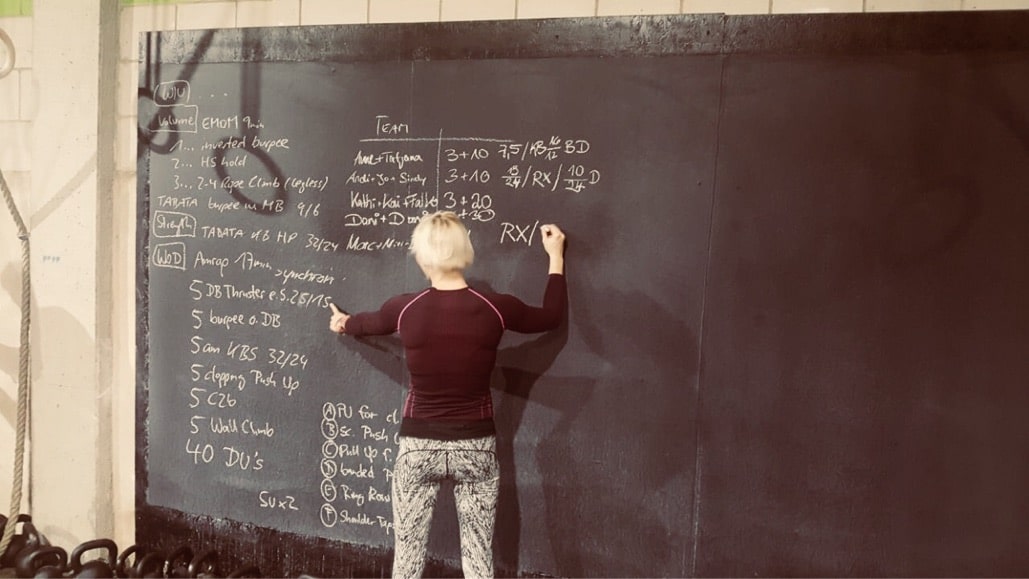 W/U . . .
Volume EMOM 9min
1... inverted burpee
2... HS hold
3... 2-4 Rope Climb (legless)
TABATA burpee m MB 9/6
Strength TABATA KB HP 32/24
WoD Amrap 17min synchron
5 DB Thruster e.S.
5 burpee o. DB
5 am KBS 32/24
5 clapping Push Up
5 C2b
5 Wall Climb
40 DU's
SUx2
TEAM
Anne+Tatjana 3+10 7,5/KB 16/12 BD
Andi+Jo+Sindy 3+10 /RX/ D
Kathi+Kai+Falko 3+20
Dani+D +30
Marc+
RX/
A PU for cl
B sc. Push
C Pull Up f.
D banded P
E Ring Row
F Shoulder Taps